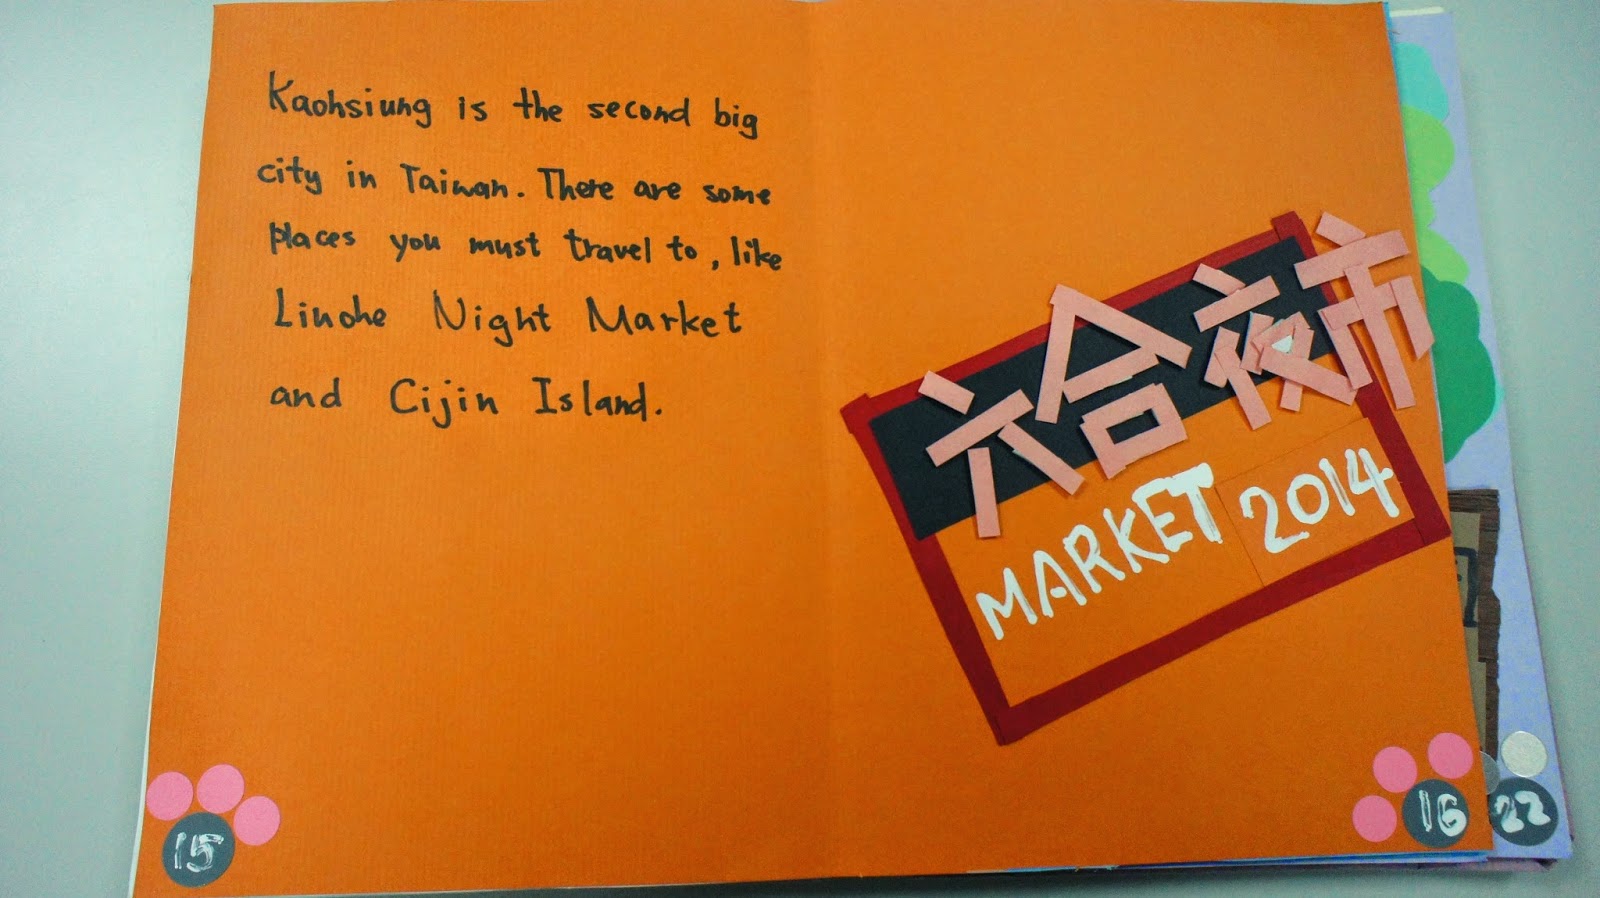 Kaohsiung is the second big
city in Taiwan. There are some
places you must travel to, like
Liuohe Night Market
and Cijin Island.
六合夜市
MARKET 2014
15
16
22